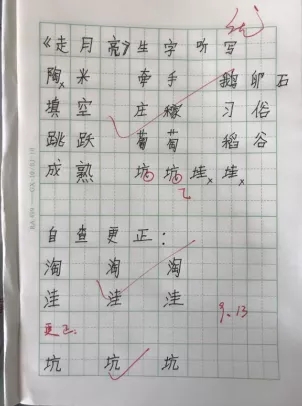 《走月亮》生字听写
陶米 牵手 鹅卵石
填空 庄稼 习俗
跳跃 葡萄 稻谷
成熟 坑坑洼洼
自查更正：
淘 淘 淘
洼 洼 洼
9.13
更正：
坑 坑 坑